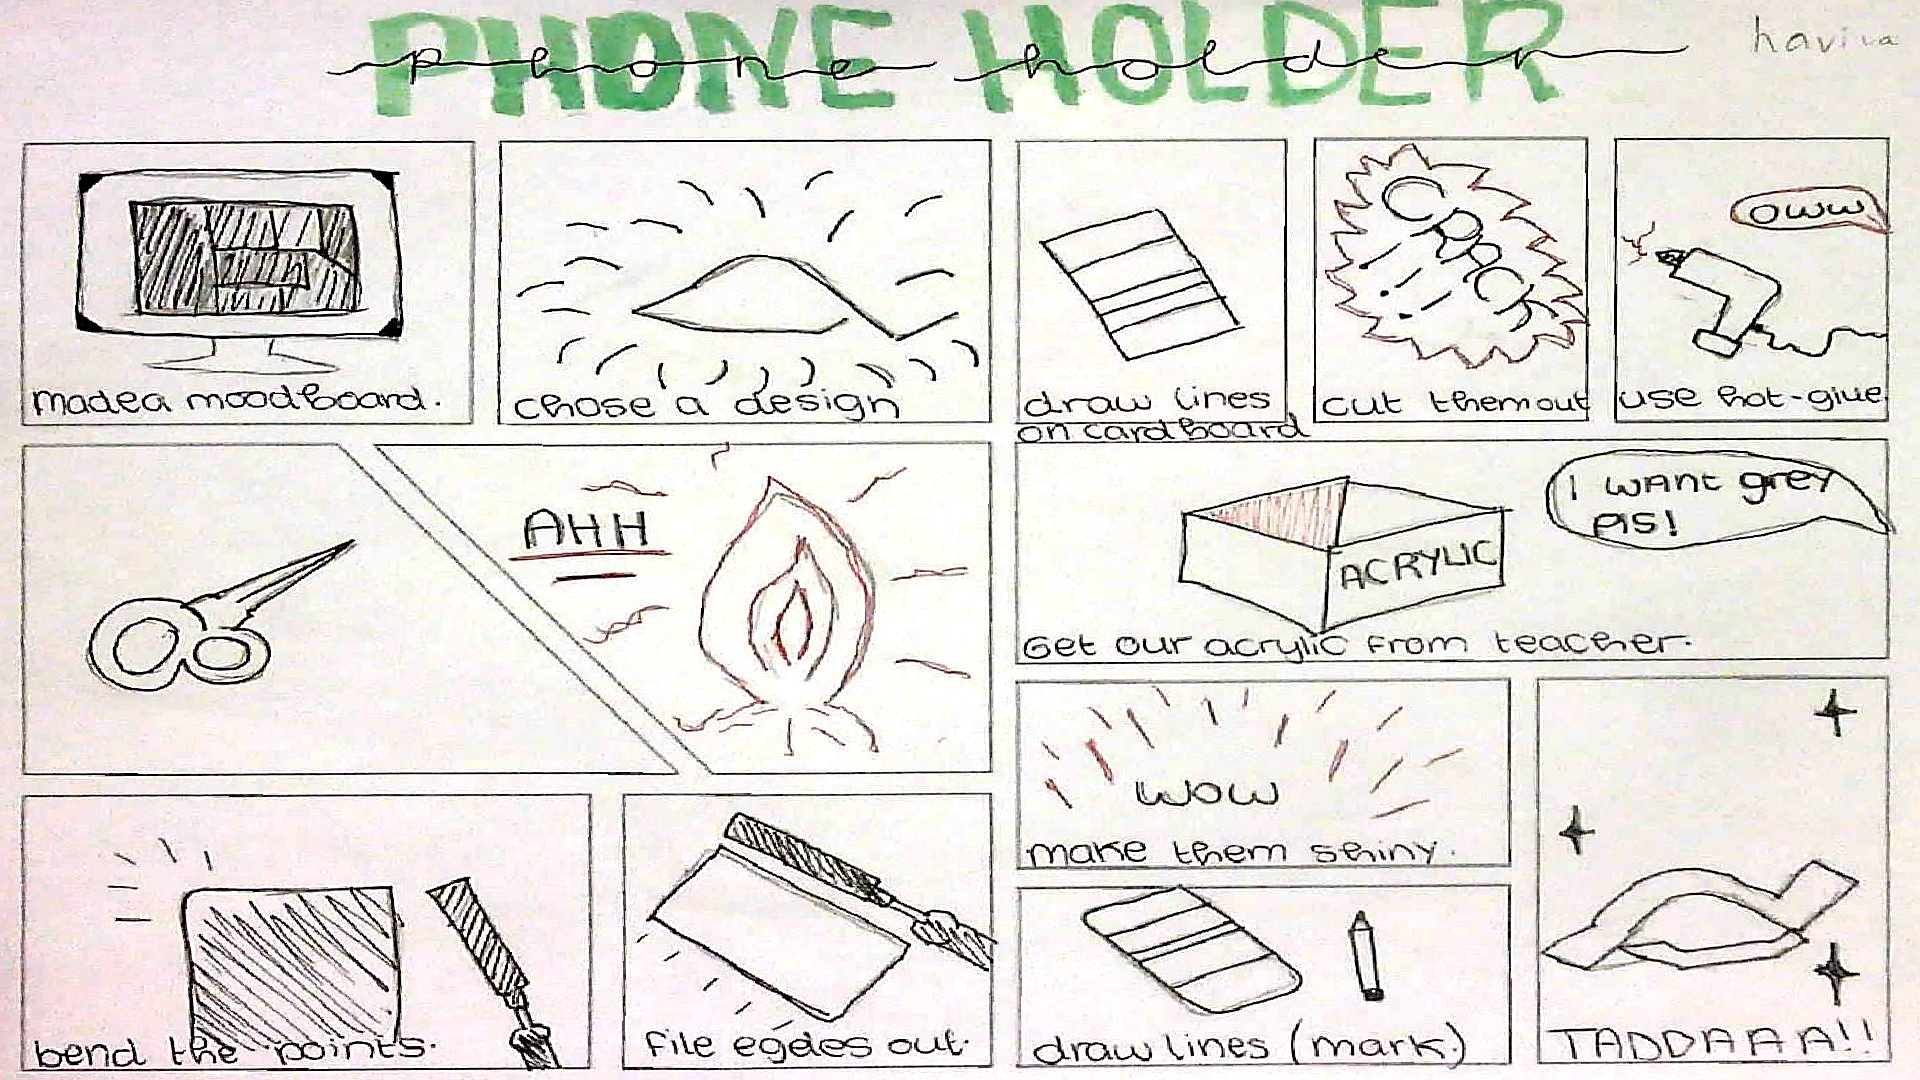 PHONE HOLDER
phone holder
havila
made a moodboard.
chose a design
draw lines
on cardboard
CRACK
!!
cut them out
oww
use hot-glue
AHH
I want grey
pls!
ACRYLIC
Get our acrylic from teacher.
bend the points.
file egdes out.
wow
make them shiny.
draw lines (mark.)
TADDAAA!!